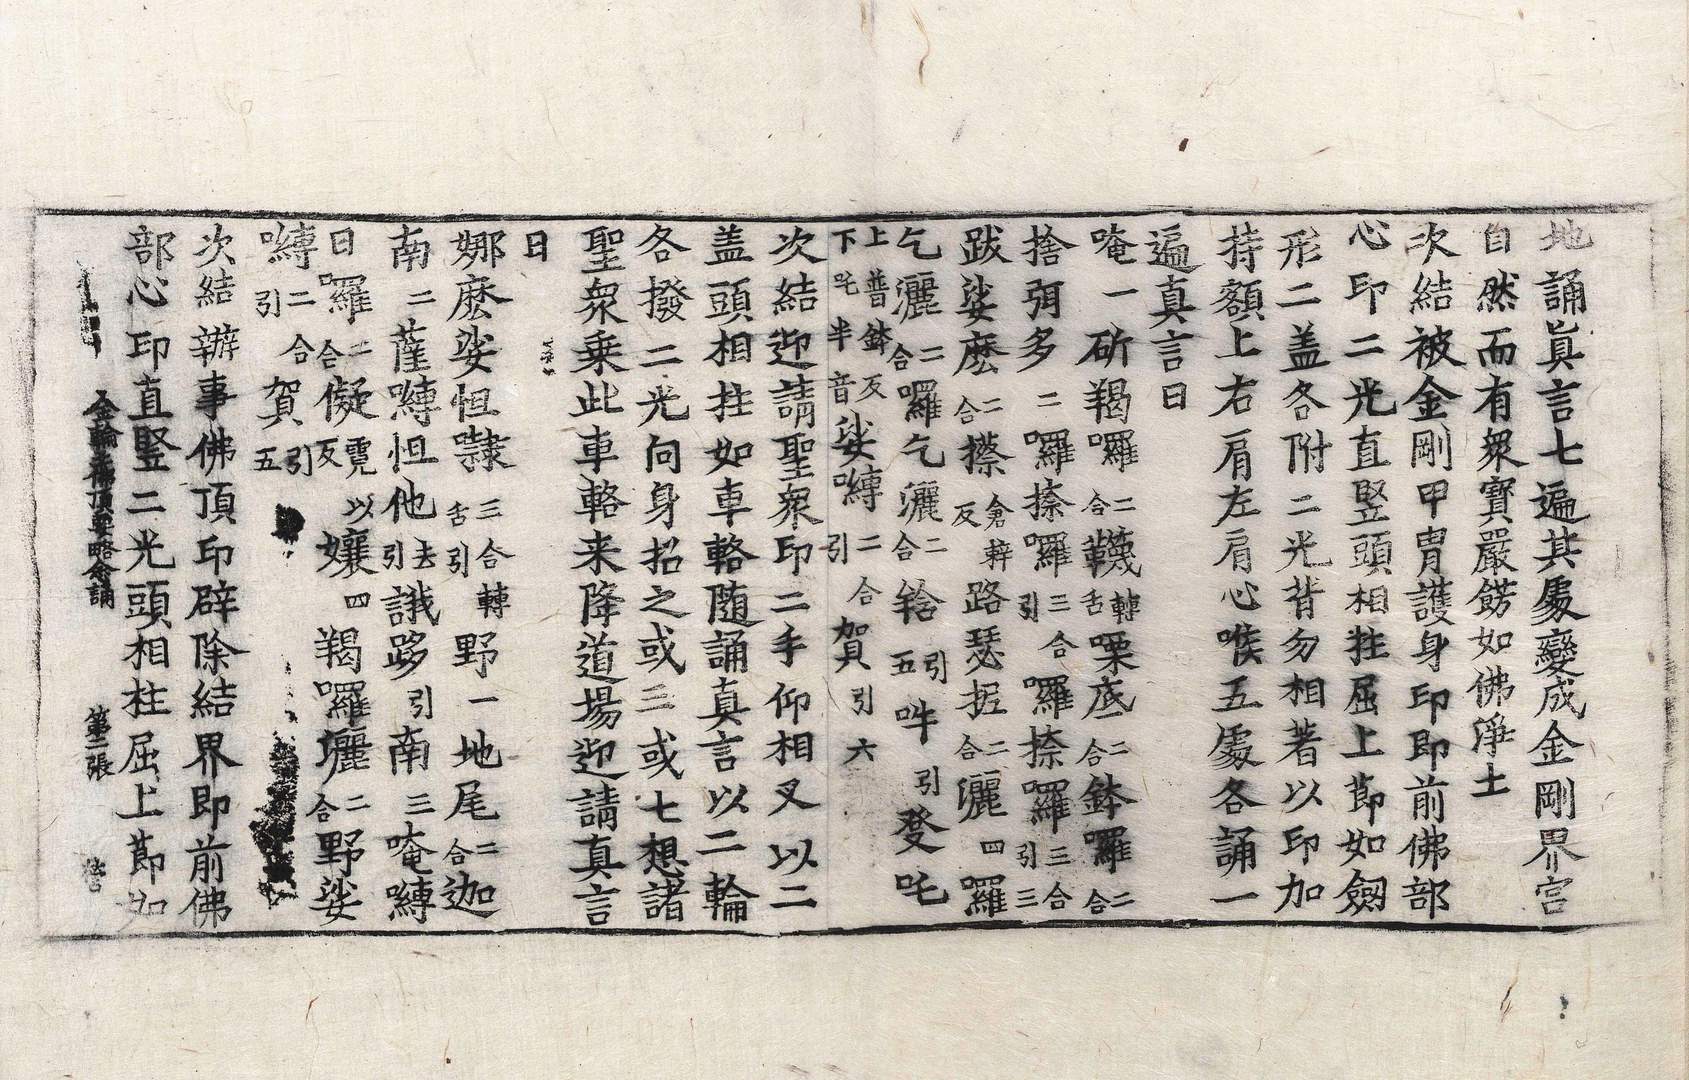 地誦真言七遍其處變成金剛界宮
自然而有衆寶嚴餝如佛淨土
次結被金剛甲冑護身印即前佛部
心印二光直竪頭相拄屈上莭如劒
形二盖各附二光背勿相著以印加
持額上右肩左肩心喉五處各誦一
遍真言曰
唵一斫羯囉二合韈轉舌㗚底二合鉢囉二合
捨弭多二囉捺囉三合引囉捺囉三合引三
跋娑麽二合攃倉辥反路瑟抳二合灑四囉
乞灑二合囉乞灑二合𤙖引五吽引發吒
上普鉢反下吒半音娑嚩二合引賀引六
次結迎請聖衆印二手仰相叉以二
盖頭相拄如車輅随誦真言以二輪
各撥二光向身招之或三或七想諸
聖衆乗此車輅来降道場迎請真言
曰
娜麽娑怛㘑三合轉舌引野一地尾二合迦
南二薩嚩怛他去引誐跢引南三唵嚩
日囉二合儗霓以反孃四羯囉灑二合野娑
嚩二合引賀引五
次結辦事佛頂印辟除結界即前佛
部心印直竪二光頭相柱屈上莭如
金輪佛頂要略念誦 第二張